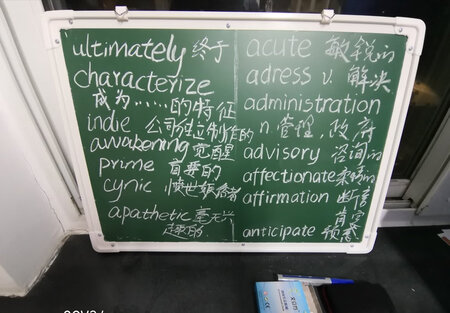 ultimately 终于
characterize
成为……的特征
indie 公司独立制作的
awakening 觉醒
prime 首要的
cynic 愤世嫉俗者
apathetic 毫无兴
趣的
acute 敏锐的
adress v. 解决
administration
n. 管理，政府
advisory 咨询的
affectionate
affirmation 断言
肯定
anticipate 预